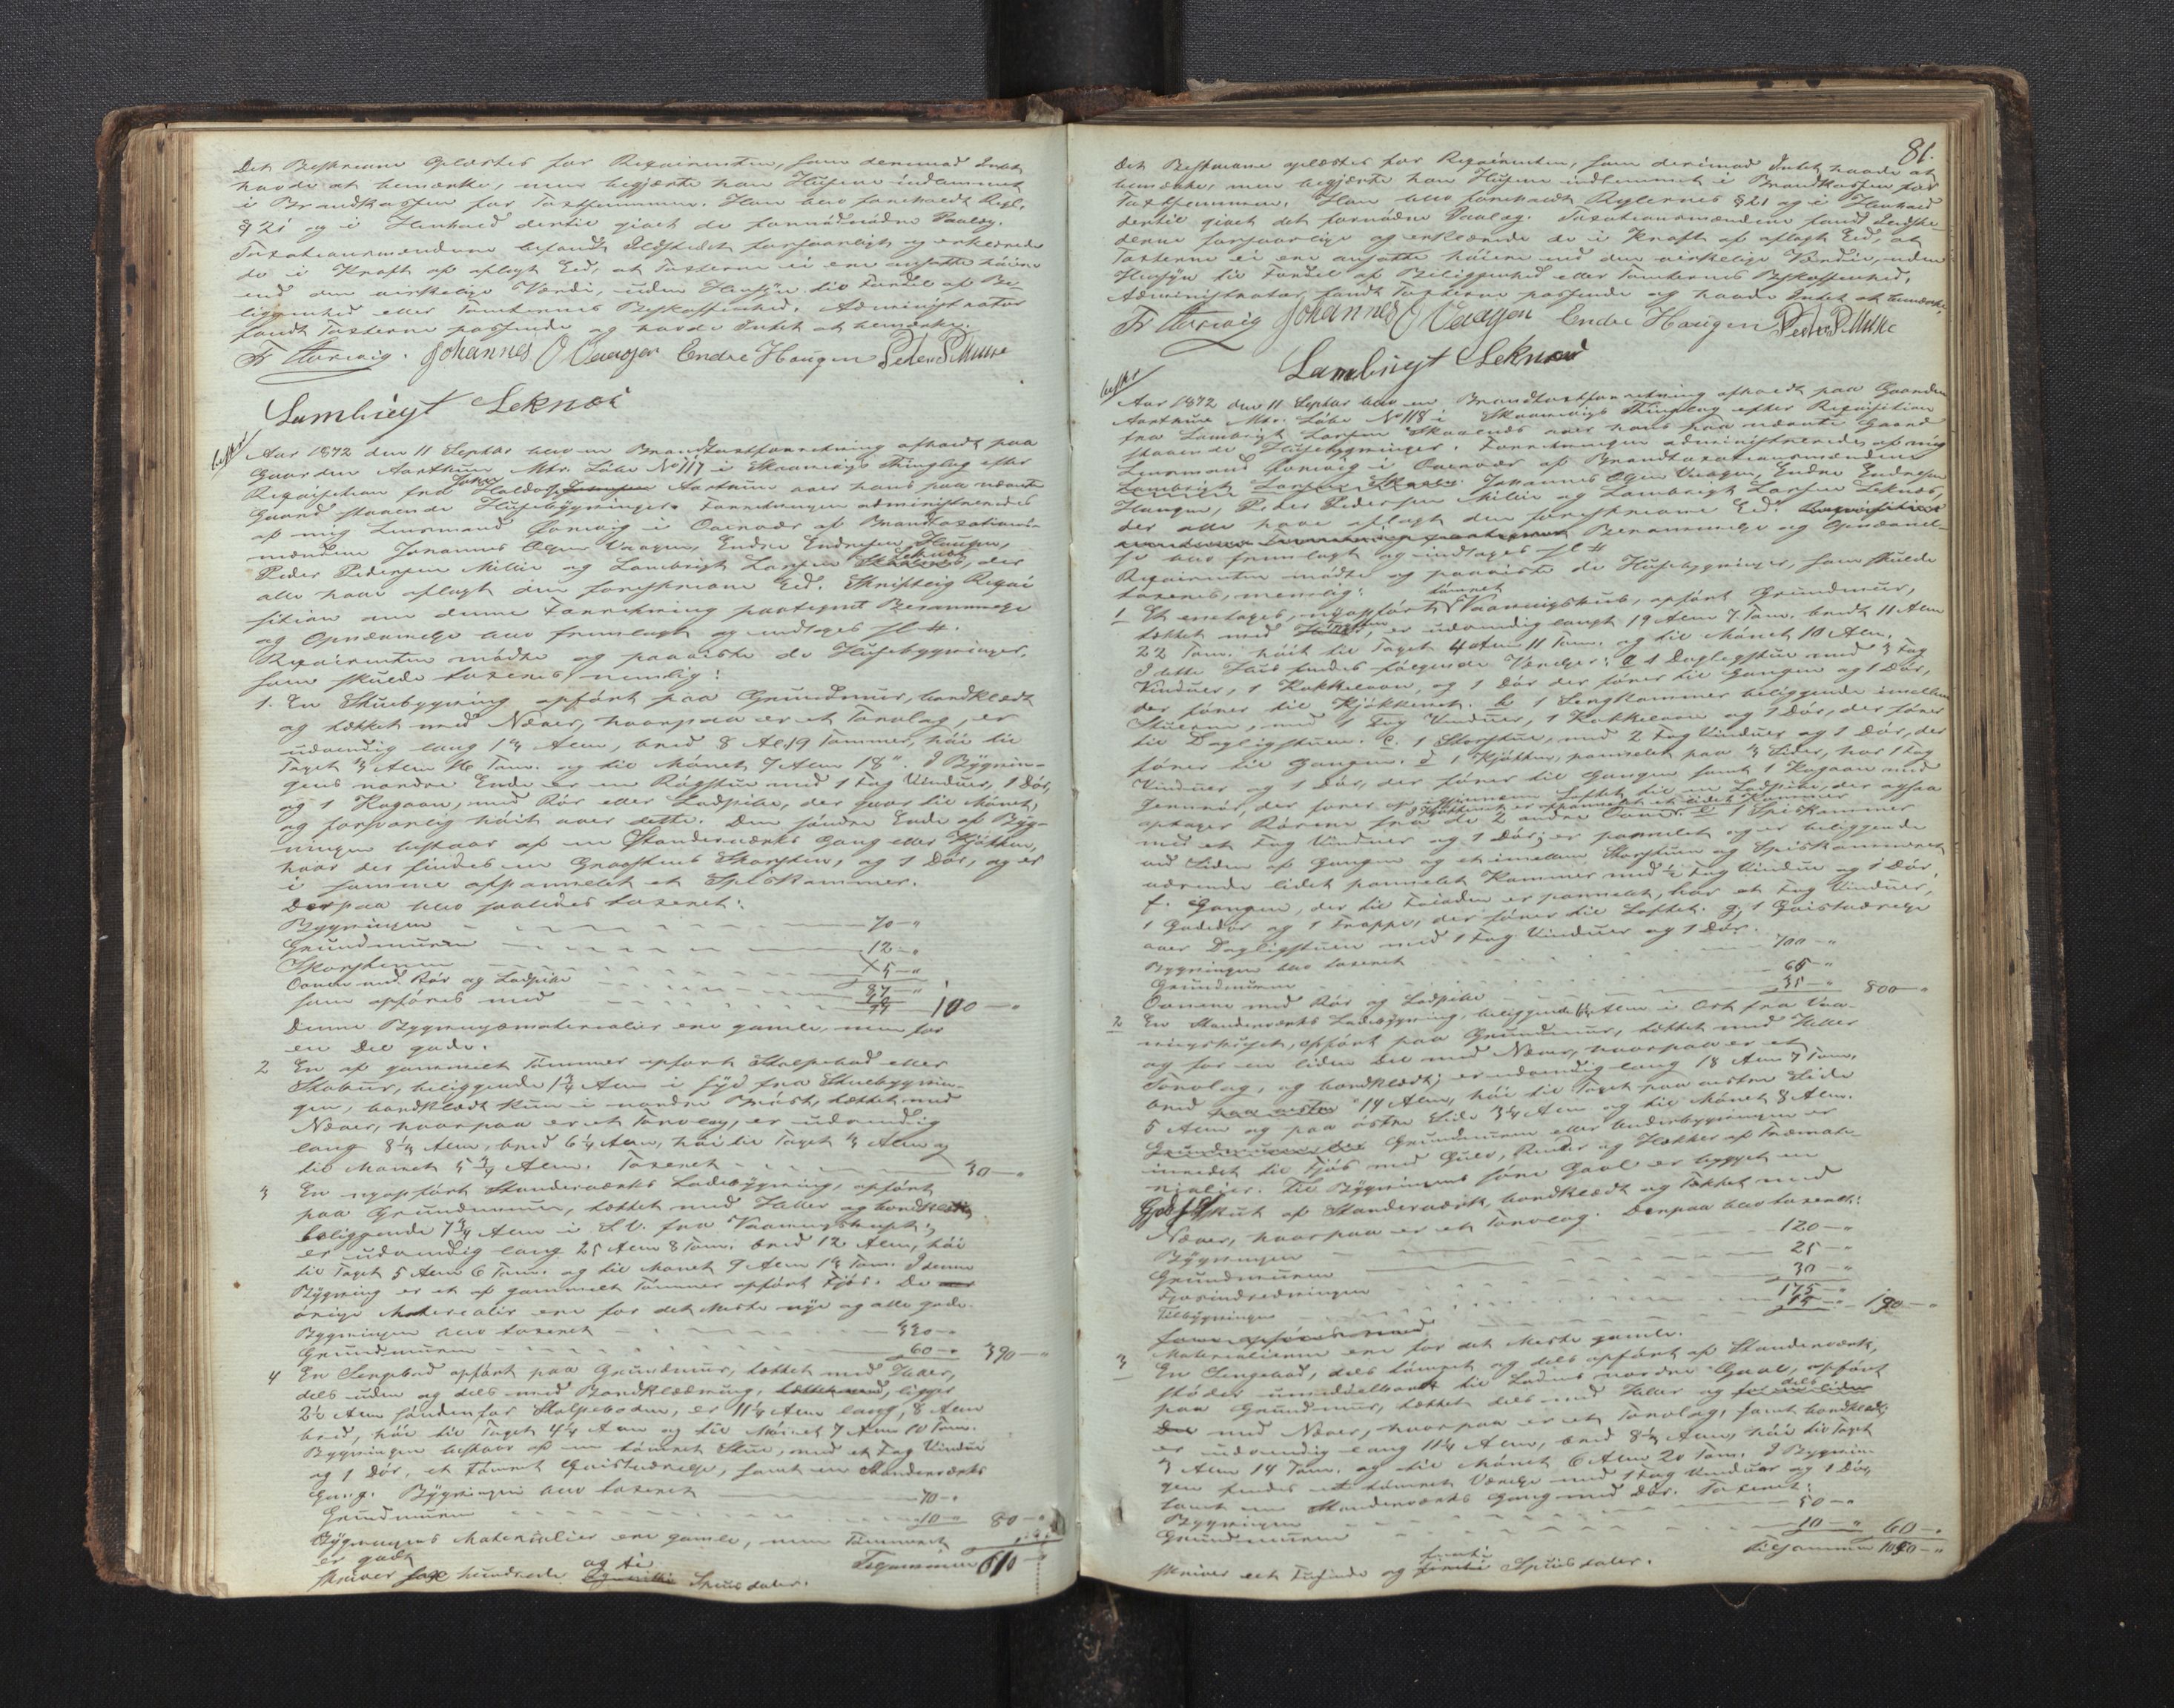 Det Beskrevne oplæstes for Reqvirenten, som derimod Intet
havde at bemærke, men begjærte han Husene indlemmet
i Brandkassen for Taxtsummen. Han blev foreholdt Regl.
§ 21 og i Henhold dertil givet de fornødne Paalæg.
Taxationsmændene befandt Ildstedet forsvarligt og erklærede
de i Kraft af aflagt Eed, at Taxterne ei ere ansatte høiere
end den virkelige Værdi, uden Hensyn til Fordel af Be-
liggenhed eller Tomternes Beskaffenhed. Administrator
fandt Taxterne passende og havde Intet at bemærke.
Fr Horvig. Johannes O Vaagen Endre Haugen Peder P. Mille
Lambrigt Leknes
Aar 1872 den 11 Septbr blev en Brandtaxtforretning afholdt paa
Gaarden Aarthun Mtr. Løbe No 117 i Thinglag efter
Reqvisition fra Haldor Aartun over hans paa nævnte
Gaard staaende Husebygninger. Forretningen administreredes
af mig Lensmand i af Brandtaxations-
mændene Johannes Olsen Vaagen, Endre Endresen Haugen,
Peder Pedersen Mille og Lambrigt Larsen Leknes, der
alle have aflagt den foreskrevne Eed. Skriftlig Reqvi
sition om denne Forretning paategnet Berammelse
og Opnævnelse blev fremlagt og indtages sl #.
Reqvirenten mødte og paaviste de Husebygninger,
som skulde taxeres, nemlig:
1. En Stuebygning opført paa Grundmuur, bordklædt
og tækket med Næver, hvorpaa er et Torvlag, er
udvendig lang 14 Alen, bred 8 Al. 19 Tommer, høi til
Taget 4 Alen 16 Tom. og til Mønet 7 Alen 18". I Bygnin-
gens nordre Ende er en Røgstue med 1 Fag Vinduer, 1 Dør,
og 1 Kogeovn, med Rør eller Ladpibe, der gaar til Mønet,
og forsvarlig høit over dette. Den søndre Ende af Byg-
ningen bestaar af en Standerværks Gang eller Kjøkken,
hvor der findes en Graasteens Skorsten, og 1 Dør, og er
i samme afpanelet et Spiskammer.
Derpaa blev saaledes taxeret:
Bygningen 70 — "
Grundmuren 12 — "
Skorstenen
Ovnen med Rør og Ladpibe 5 — "
som opføres med 100 — "
Denne Bygningsmaterialier ere gamle, men for
en Del gode.
2 En af gammelt Tømmer opført Stolpebod eller
Stabur, beliggende 1 3/4 Alen i Syd fra Stuebygnin-
gen, bordklædt kun i nordre Brøst, tækket med
Næver, hvorpaa er et Torvlag, er udvendig
lang 8 1/4 Alen, bred 6 1/4 Alen, høi til Taget 4 Alen og
til Mønet 5 3/4 Alen. Taxeret 30 — "
3 En nyopført Standerværks Ladebygning, opført
paa Grundmuur, tækket med Heller og bordklædt
beliggende 7 3/4 Alen i S.V. fra Vaaningshuset;
er udvendig lang 25 Alen 8 Tom. bred 12 Alen, høi
til Taget 5 Alen 6 Tom. og til Mønet 9 Alen 14 Tom. I denne
Bygning er et af gammelt Tømmer opført Fjøs. De
øvrige Materialier ere for det Meste nye og alle gode.
Bygningen blev taxeret 330 — "
Grundmuren 60 — " 390 — "
4 En Sengebod opført paa Grundmuur, tækket med Heller,
dels uden og dels med Bordklædning, ligger
2 1/2 Alen søndenfor Stolpeboden, er 11 1/4 Alen lang, 8 Alen
bred, høi til Taget 4 1/4 Alen og til Mønet 7 Alen 10 Tom.
Bygningen bestaar af en tømret Stue, med et Fag Vinduer
og 1 Dør, et tømret Qvistværelse, samt en Standerværks
Gang. Bygningen blev taxeret 70 — "
Grundmuren 10 — " 80 — "
Bygningens Materialier ere gamle, men Tømmeret
er godt Tilsammen 610 — "
skriver sex hundrede og ti Speciesdaler.
81.
Det Beskrevne oplæstes for Reqvirenten, som derimod Intet havde at
bemærke, men begjærte han Husene indlemmet i Brandkassen for
Taxtsummen. Han blev foreholdt Reglernes § 21 og i Henhold
dertil givet det fornødne Paalæg. Taxationsmændene fandt Ildste-
derne forsvarlige og erklærede de i Kraft af aflagt Eed, at
Taxterne ei ere ansatte høiere end den virkelige Værdi, uden
Hensyn til Fordel af Beliggenhed eller Tomternes Beskaffenhed.
Administrator fandt Taxterne passende og havde Intet at bemærke.
Fr Horvig Johannes O Vaagen Endre Haugen Peder P. Mille
Lambrigt Leknes
Aar 1872 den 11 Septbr blev en Brandtaxtforretning afholdt paa Gaarden
Aarthun Mtr. Løbe No 118 i Thinglag efter Reqvisition
fra Lambrigt Larsen over hans paa nævnte Gaard
staaende Husebygninger. Forretningen administreredes af mig
Lensmand i af Brandtaxationsmændene
Johannes Olsen Vaagen, Endre Endresen
Haugen, Peder Pedersen Mille og Lambrigt Larsen Leknes,
der alle have aflagt den foreskrevne Eed.
Berammelse og Opnævnel-
se blev fremlagt og indtages sl #
Reqvirenten mødte og paaviste de Husebygninger, som skulde
taxeres, nemlig:
1 Et enetages, nyopført tømret Vaaningshus, opført Grundmuur,
tækket med er udvendig langt 19 Alen 7 Tom. bredt 11 Alen
22 Tom. høit til Taget 4 Alen 11 Tom. og til Mønet 10 Alen.
I dette Huus findes følgende Værelser: a 1 Dagligstue med 3 Fag
Vinduer, 1 Kakkelovn, og 1 Dør der fører til Gangen og 1 Dør,
der fører til Kjøkkenet. b 1 Sengkammer beliggende imellem
Stuerne, med 1 Fag Vinduer, 1 Kakkelovn og 1 Dør, der fører
til Dagligstuen. c. 1 Storstue, med 2 Fag Vinduer og 1 Dør, der
fører til Gangen. d 1 Kjøkken, panelet paa 4 Sider, har 1 Fag
Vinduer og 1 Dør, der fører til Gangen samt 1 Kogeovn med
Jernrør, der fører op igjennem Loftet til en Ladpibe, der ogsaa
optager Rørene fra de 2 andre Ovne. e 1 Spiskammer
med et Fag Vinduer og 1 Dør; er panelet og er beliggende
ved Siden af Gangen og et imellem Storstuen og Spiskammeret
værende lidet panelet Kammer med 1/2 Fag Vindue og 1 Dør,
f. Gangen, der til Facaden er panelet, har et Fag Vinduer,
1 Gadedør og 1 Trappe, der fører til Loftet. g, 1 Qvistværelse
over Dagligstuen med 1 Fag Vinduer og 1 Dør.
Bygningen blev taxeret 700 — "
Grundmuren 65 — "
Ovnene med Rør og Ladpibe 35 — " 800 — "
2 En Standerværks Ladebygning, beliggende Alen i Ost fra Vaa-
ningshuset, opført paa Grundmuur, tækket med Heller
og for en liden Del med Næver, hvorpaa er et
Torvlag, og bordklædt; er udvendig lang 18 Alen 7 Tom.
bred 14 Alen, høi til Taget paa vestre Side
5 Alen og paa østre Side 3 1/4 Alen og til Mønet 8 Alen.
Grundmuren eller Underbygningen er
indredet til Fjøs med Gulv, Render og Hækker af Træmate-
rialier. Til Bygningens søre Gavl er bygget en
skut af Standerværk, bordklædt og tækket med
Næver, hvorpaa er et Torvlag. Derpaa blev taxeret:
Bygningen 120 — "
Grundmuren 25 — "
Fjøsindredningen 30 — "
175 — "
Tilbygningen 15 — " 190 — "
som opføres med
Materialierne ere for det Meste gamle.
3 En Sengebod, dels tømret og dels opført af Standerværk,
støder umiddelbart til Ladens nordre Gavl, opført
paa Grundmuur, tækket dels med Heller og dels
med Næver, hvorpaa er et Torvlag, samt bordklædt;
er udvendig lang 11 1/4 Alen, bred 8 1/4 Alen, høi til Taget
4 Alen 14 Tom. og til Mønet 6 Alen 20 Tom. I Bygnin-
gen findes et tømret Værelse med 1 Fag Vinduer og 1 Dør,
samt en Standerværks Gang med Dør. Taxeret:
Bygningen 50 — "
Grundmuren 10 — " 60 — "
Tilsammen 1050 — "
skriver eet Tusinde og femti Speciesdaler.